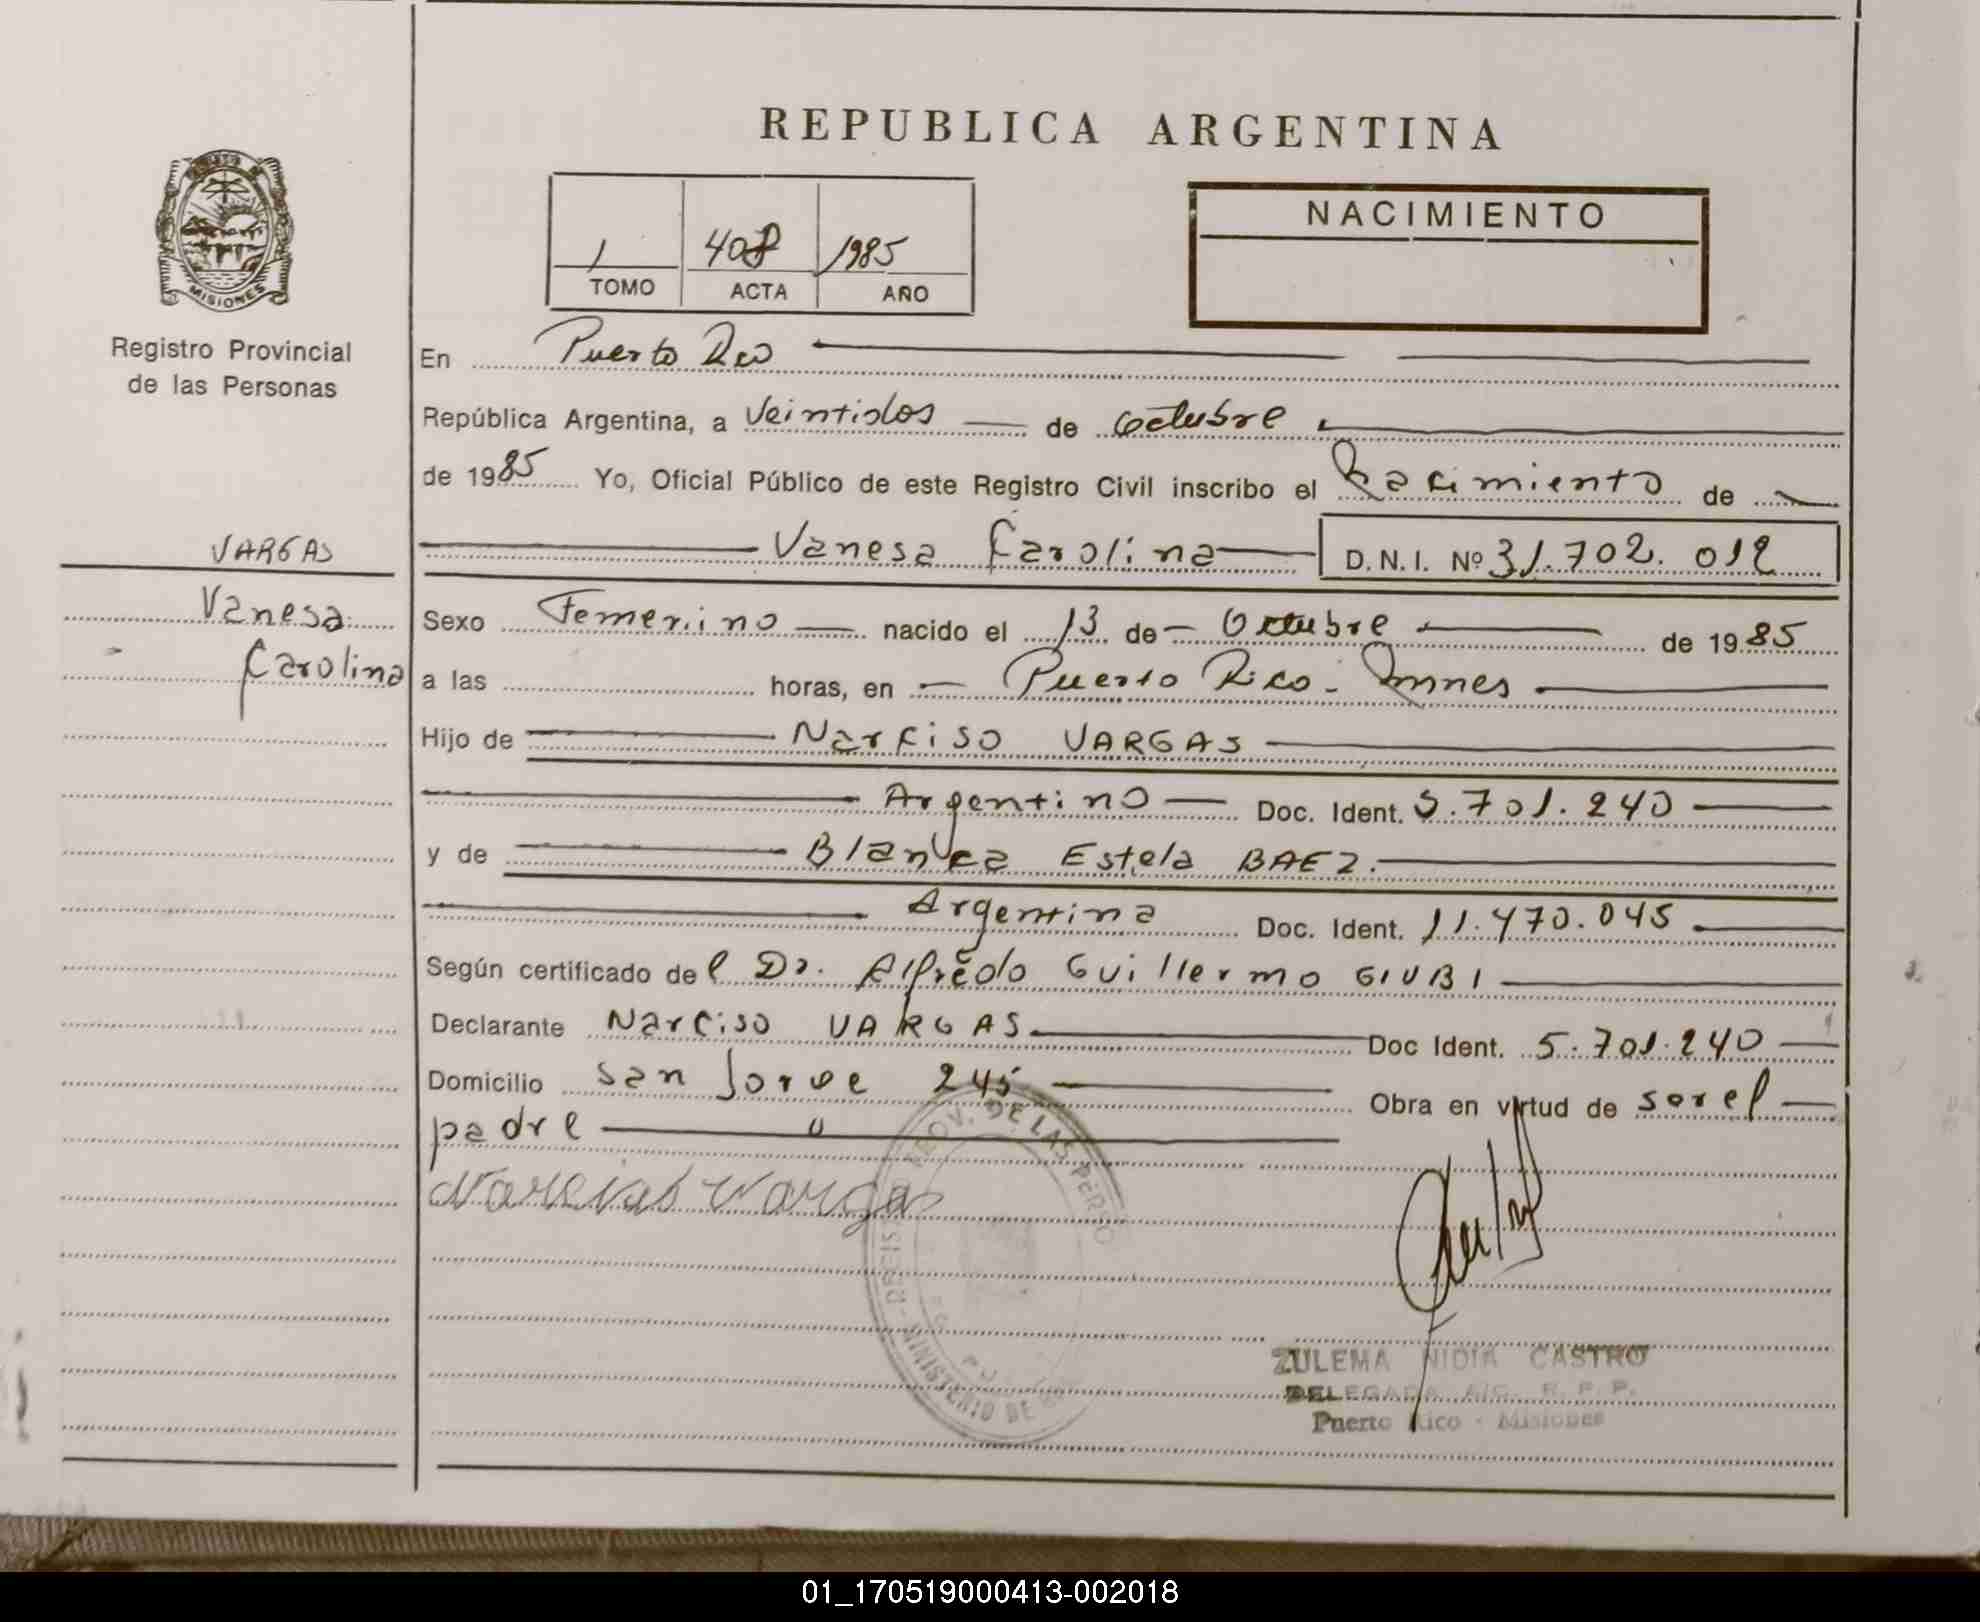 REPUBLICA ARGENTINA
MISIONES
Registro Provincial
de las Personas
1 408 1985
TOMO ACTA AÑO
NACIMIENTO
En Puerto Rico
República Argentina, a Veintidos de Octubre
de 1985 Yo, Oficial Público de este Registro Civil inscribo el Nacimiento de
VARGAS
Vanesa Carolina D.N.I. Nº 31.702.012
Vanesa
Carolina
Sexo Femenino nacido el 13 de Octubre de 1985
a las horas, en Puerto Rico - Mnes
Hijo de Narciso VARGAS
Argentino Doc. Ident. 5.701.240
y de Blanca Estela BAEZ.
Argentina Doc. Ident. 11.470.045
Según certificado del Dr. Alfredo Guillermo GIUBI
Declarante Narciso VARGAS Doc Ident. 5.701.240
Domicilio San Jorge 245 Obra en virtud de ser el
padre
PROV. DE LAS PERSO
MINISTERIO DE
ZULEMA NIDIA CASTRO
DELEGADA A/C. R. P. P.
Puerto Rico - Misiones
01_170519000413-002018